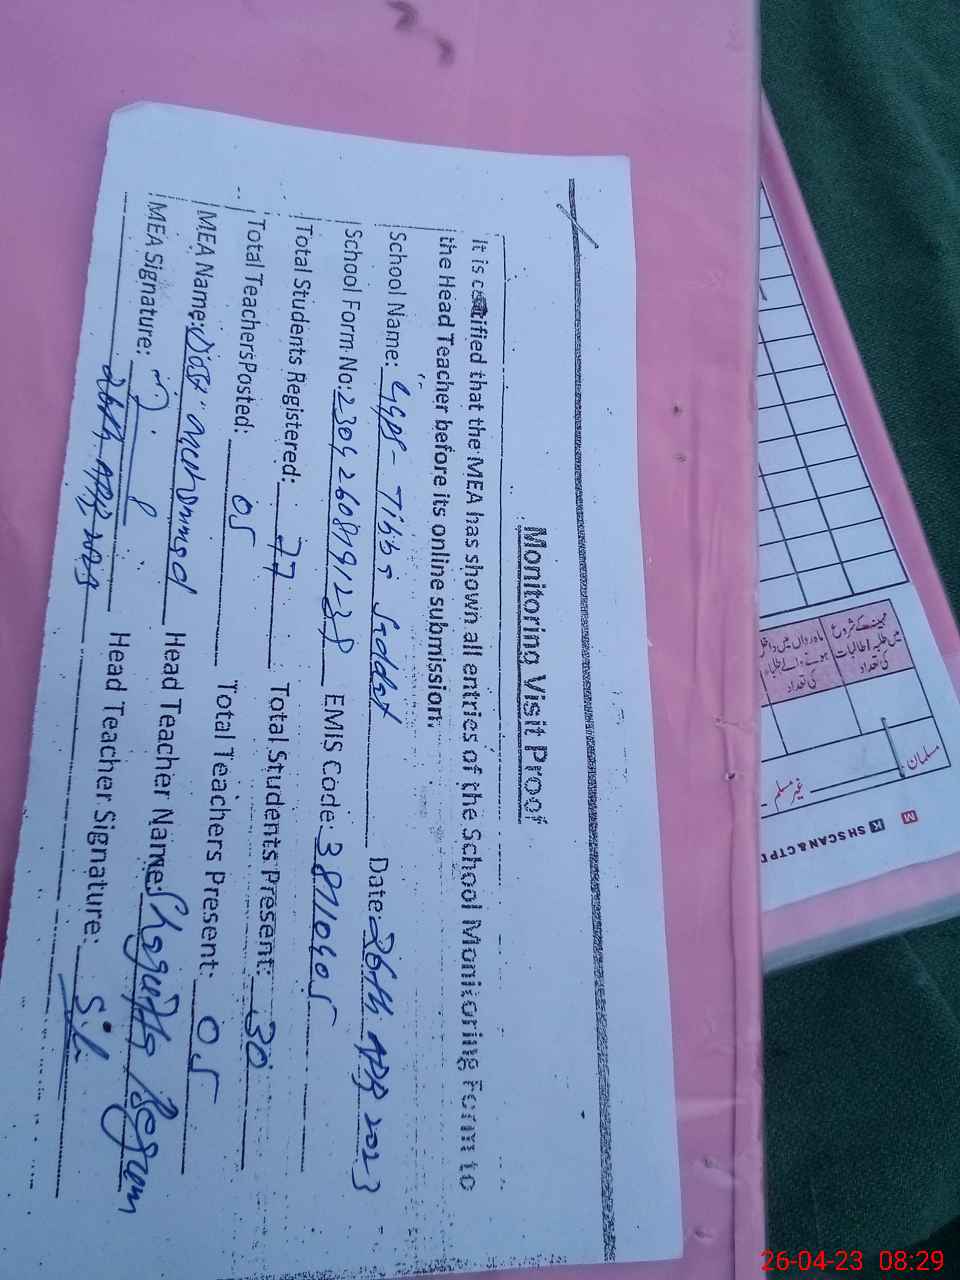 Monitoring Visit Proof
It is certified that the MEA has shown all entries of the School Monitoring Form to
the Head Teacher before its online submission.
School Name: GGPS - Tibba Date: 26th APR 2023
School Form No: EMIS Code: 38710405
Total Students Registered: 77 Total Students Present: 30
Total TeachersPosted: 05 Total Teachers Present: 05
MEA Name: Dost Muhammad Head Teacher Name: Shagufta Begum
MEA Signature: Head Teacher Signature:
26th APR 2023
مہینہ کے شروع میں طلبہ / طالبات کی تعداد
ماہ رواں میں داخل ہونے والے طلباء کی تعداد
مسلمان
غیر مسلم
M K SH SCAN & CTP
26-04-23 08:29